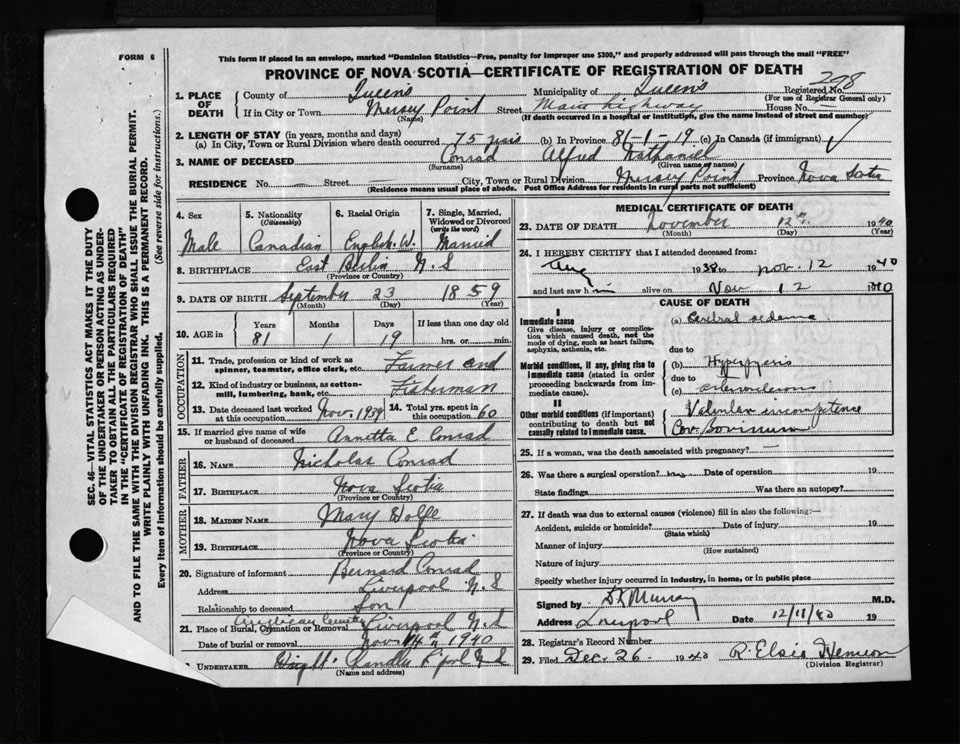 FORM 6
This form if placed in an envelope, marked "Dominion Statistics—Free, penalty for improper use $300," and properly addressed will pass through the mail "FREE"
PROVINCE OF NOVA SCOTIA—CERTIFICATE OF REGISTRATION OF DEATH
298
1. PLACE OF DEATH
County of Queens Municipality of Queens Registered No.
(For use of Registrar General only)
If in City or Town Mersey Point Street Main highway House No. —
(Name) (If death occurred in a hospital or institution, give the name instead of street and number)
2. LENGTH OF STAY (in years, months and days)
(a) In City, Town or Rural Division where death occurred 75 years (b) In Province 81-1-19 (c) In Canada (if immigrant)
3. NAME OF DECEASED Conrad Alfred Nathaniel
(Surname) (Given name or names)
RESIDENCE No. — Street — City, Town or Rural Division Mersey Point Province Nova Scotia
(Residence means usual place of abode. Post Office Address for residents in rural parts not sufficient)
4. Sex
Male
5. Nationality
(Citizenship)
Canadian
6. Racial Origin
English. W.
7. Single, Married, Widowed or Divorced
(write the word)
Married
8. BIRTHPLACE East Berlin N.S
(Province or Country)
9. DATE OF BIRTH September 23 1859
(Month) (Day) (Year)
10. AGE in
Years Months Days If less than one day old
81 1 19 hrs. or min.
OCCUPATION
11. Trade, profession or kind of work as spinner, teamster, office clerk, etc. Farmer and
12. Kind of industry or business, as cotton-mill, lumbering, bank, etc. Fisherman
13. Date deceased last worked at this occupation Nov. 1939
14. Total yrs. spent in this occupation 60
15. If married give name of wife or husband of deceased Annetta E Conrad
FATHER
16. NAME Nicholas Conrad
17. BIRTHPLACE Nova Scotia
(Province or Country)
MOTHER
18. MAIDEN NAME Mary Wolfe
19. BIRTHPLACE Nova Scotia
(Province or Country)
20. Signature of informant Bernard Conrad
Address Liverpool N.S
Relationship to deceased Son
21. Place of Burial, Cremation or Removal Liverpool N.S
Date of burial or removal Nov. 14 1940
UNDERTAKER
(Name and address)
MEDICAL CERTIFICATE OF DEATH
23. DATE OF DEATH November 12th 1940
(Month) (Day) (Year)
24. I HEREBY CERTIFY that I attended deceased from:
Aug 1938 to Nov. 12 1940
and last saw him alive on Nov 12 1940
CAUSE OF DEATH
I
Immediate cause
Give disease, injury or complication which caused death, not the mode of dying, such as heart failure, asphyxia, asthenia, etc.
(a)
due to
Morbid conditions, if any, giving rise to immediate cause (stated in order proceeding backwards from immediate cause).
(b)
due to
(c)
II
Other morbid conditions (if important) contributing to death but not causally related to immediate cause.
Valvular incompetence
25. If a woman, was the death associated with pregnancy?
26. Was there a surgical operation? no Date of operation 19
State findings Was there an autopsy?
27. If death was due to external causes (violence) fill in also the following:—
Accident, suicide or homicide? Date of injury 19
(State which)
Manner of injury
(How sustained)
Nature of injury
Specify whether injury occurred in industry, in home, or in public place
Signed by Murray M.D.
Address Liverpool Date 12/11/40
28. Registrar's Record Number
29. Filed Dec. 26 1940 R. Elsie
(Division Registrar)
SEC. 46—VITAL STATISTICS ACT MAKES IT THE DUTY
OF THE UNDERTAKER OR PERSON ACTING AS UNDERTAKER TO OBTAIN ALL THE PARTICULARS REQUIRED
IN THE "CERTIFICATE OF REGISTRATION OF DEATH"
AND TO FILE THE SAME WITH THE DIVISION REGISTRAR WHO SHALL ISSUE THE BURIAL PERMIT.
WRITE PLAINLY WITH UNFADING INK. THIS IS A PERMANENT RECORD.
Every item of information should be carefully supplied. (See reverse side for instructions.)